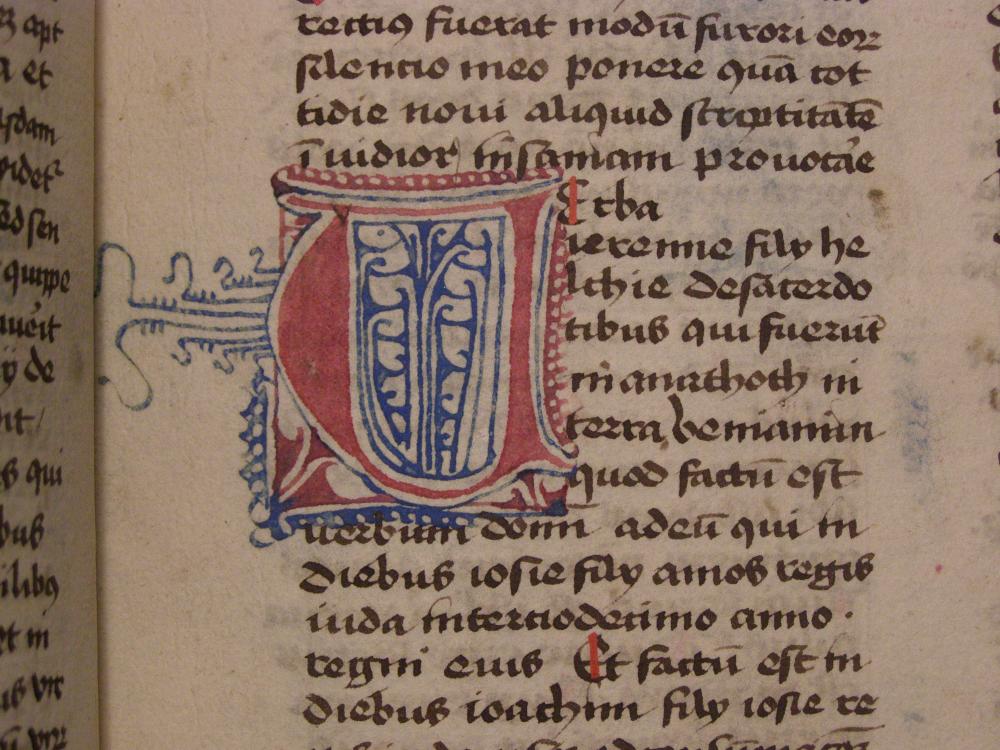 rectius fuerat modū furori eorꝝ
silencio meo ponere quā cot
tidie noui aliquid scriptitātē
īuidiorꝝ insaniam prouocāe
Erba
ieremie filij he
lchie desacerdo
tibus qui fuerūt
in anathoth in
terra beniamin
quod factū est
uerbum domī adeū qui in
diebus iosie filij amos regis
iuda intertiodecimo anno ·
regni eius Et factū est in
diebus ioachim filij iosie re
apt
et
sdam
videt
sed sen
quippe
auēit
ij de
nt /
qui
bus
ilibꝫ
et in
vir